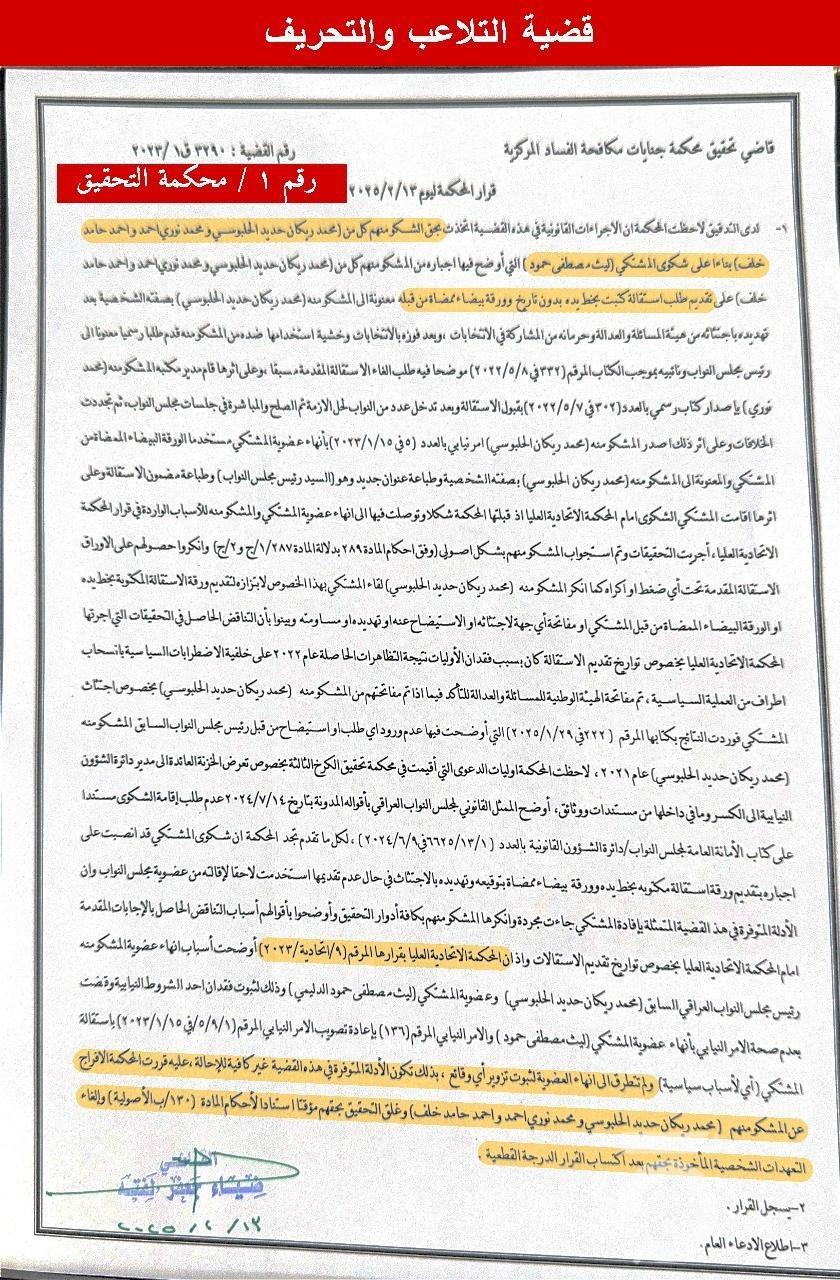 قضية التلاعب والتحريف
قاضي تحقيق محكمة جنايات مكافحة الفساد المركزية
رقم القضية : ٣٢٩٠ ق١ /٢٠٢٣
رقم ١ / محكمة التحقيق
قرار المحكمة ليوم ٢٠٢٥/٢/١٣
١- لدى التدقيق لاحظت المحكمة ان الاجراءات القانونية في هذه القضية اتخذت بحق المشكو منهم كل من (محمد ريكان حديد الحلبوسي و محمد نوري احمد و احمد حامد
خلف) بناءا على شكوى المشتكي (ليث مصطفى حمود ) التي أوضح فيها اجباره من المشكو منهم كل من (محمد ريكان حديد الحلبوسي و محمد نوري احمد و احمد حامد
خلف) على تقديم طلب استقالة كتبت بخط يده بدون تاريخ وورقة بيضاء ممضاة من قبله معنونة الى المشكو منه (محمد ريكان حديد الحلبوسي) بصفته الشخصية بعد
تهديده باجتثاثه من هيئة المسائلة والعدالة وحرمانه من المشاركة في الانتخابات ، وبعد فوزه بالانتخابات وخشية استخدامها ضده من المشكو منه قدم طلبا رسميا معنونا الى
رئيس مجلس النواب ونائبيه بموجب الكتاب المرقم (٣٣٢ في ٢٠٢٢/٥/٨) موضحا فيه طلب الغاء الاستقالة المقدمة مسبقا ، وعلى اثرها قام مدير مكتبه المشكو منه (محمد
نوري) بإصدار كتاب رسمي بالعدد (٣٠٢ في ٢٠٢٢/٥/٧) بقبول الاستقالة وبعد تدخل عدد من النواب لحل الازمة تم الصلح والمباشرة في جلسات مجلس النواب، ثم تجددت
الخلافات وعلى اثر ذلك اصدر المشكو منه (محمد ريكان الحلبوسي) امر نيابي بالعدد (٥ في ٢٠٢٣/١/١٥) بأنهاء عضوية المشتكي مستخدما الورقة البيضاء الممضاة من
المشتكي والمعنونة الى المشكو منه (محمد ريكان الحلبوسي) بصفته الشخصية وطباعة عنوان جديد وهو (السيد رئيس مجلس النواب) وطباعة مضمون الاستقالة وعلى
اثرها اقامت المشتكي الشكوى امام المحكمة الاتحادية العليا اذ قبلتها المحكمة شكلا وتوصلت فيها الى انهاء عضوية المشتكي والمشكو منه للأسباب الواردة في قرار المحكمة
الاتحادية العليا، أجريت التحقيقات وتم استجواب المشكو منهم بشكل اصولي (وفق احكام المادة ٢٨٩ بدلالة المادة ١/٢٨٧/ج و٢/ج) وانكروا حصولهم على الاوراق
الاستقالة المقدمة تحت أي ضغط او اكراه كما انكر المشكو منه (محمد ريكان حديد الحلبوسي) لقاء المشتكي بهذا الخصوص لابتزازه لتقديم ورقة الاستقالة المكتوبة بخط يده
او الورقة البيضاء الممضاة من قبل المشتكي او مفاتحة أي جهة لاجتثاثه او الاستيضاح عنه او تهديده او مساومته وبينوا بأن التناقض الحاصل في التحقيقات التي اجرتها
المحكمة الاتحادية العليا بخصوص تواريخ تقديم الاستقالة كان بسبب فقدان الأوليات نتيجة التظاهرات الحاصلة عام ٢٠٢٢ على خلفية الاضطرابات السياسية بانسحاب
اطراف من العملية السياسية ، تم مفاتحة الهيئة الوطنية للمسائلة والعدالة للتأكد فيما اذا تم مفاتحتهم من المشكو منه (محمد ريكان حديد الحلبوسي) بخصوص اجتثاث
المشتكي فوردت النتائج بكتابها المرقم ( ٢٢٢ في ٢٠٢٥/١/٢٩) التي أوضحت فيها عدم ورود اي طلب او استيضاح من قبل رئيس مجلس النواب السابق المشكو منه
(محمد ريكان حديد الحلبوسي) عام ٢٠٢١ ، لاحظت المحكمة اوليات الدعوى التي أقيمت في محكمة تحقيق الكرخ الثالثة بخصوص تعرض الخزنة العائدة الى مدير دائرة الشؤون
النيابية الى الكسر وما في داخلها من مستندات ووثائق، أوضح الممثل القانوني لمجلس النواب العراقي بأقواله المدونة بتاريخ ٢٠٢٤/٧/١٤ عدم طلب إقامة الشكوى مستندا
على كتاب الأمانة العامة لمجلس النواب/دائرة الشؤون القانونية بالعدد (٦٦٢٥/١٣/١ في ٢٠٢٤/٦/٩) ، لكل ما تقدم تجد المحكمة ان شكوى المشتكي قد انصبت على
اجباره بتقديم ورقة استقالة مكتوبه بخط يده وورقة بيضاء ممضاة بتوقيعه وتهديده بالاجتثاث في حال عدم تقديمها استخدمت لاحقا لإقالته من عضوية مجلس النواب وان
الأدلة المتوفرة في هذه القضية المتمثلة بإفادة المشتكي جاءت مجردة وانكرها المشكو منهم بكافة أدوار التحقيق وأوضحوا بأقوالهم أسباب التناقض الحاصل بالإجابات المقدمة
امام المحكمة الاتحادية العليا بخصوص تواريخ تقديم الاستقالات واذ ان المحكمة الاتحادية العليا بقرارها المرقم (٩/اتحادية/٢٠٢٣) أوضحت أسباب انهاء عضوية المشكو منه
رئيس مجلس النواب العراقي السابق (محمد ريكان حديد الحلبوسي) وعضوية المشتكي (ليث مصطفى حمود الدليمي) وذلك لثبوت فقدان احد الشروط النيابية وقضت
بعدم صحة الامر النيابي بأنهاء عضوية المشتكي (ليث مصطفى حمود ) والامر النيابي المرقم (١٣٦) بإعادة تصويب الامر النيابي المرقم (٥/٩/١ في ٢٠٢٣/١/١٥) باستقالة
المشتكي (أي لأسباب سياسية) ولم تتطرق الى انهاء العضوية لثبوت تزوير أي وقائع ، بذلك تكون الأدلة المتوفرة في هذه القضية غير كافية للإحالة، عليه قررت المحكمة الافراج
عن المشكو منهم (محمد ريكان حديد الحلبوسي و محمد نوري احمد و احمد حامد خلف) وغلق التحقيق بحقهم مؤقتا استنادا لأحكام المادة (١٣٠/ب الأصولية) والغاء
التعهدات الشخصية المأخوذة بحقهم بعد اكتساب القرار الدرجة القطعية .
٢-يسجل القرار .
٣-اطلاع الادعاء العام.
القاضي
ضياء جعفر لفتة
٢٠٢٥ / ٢ / ١٣